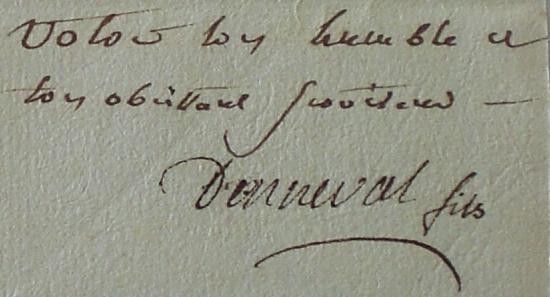 Votre très humble et
très obéissant serviteur —
Denneval fils